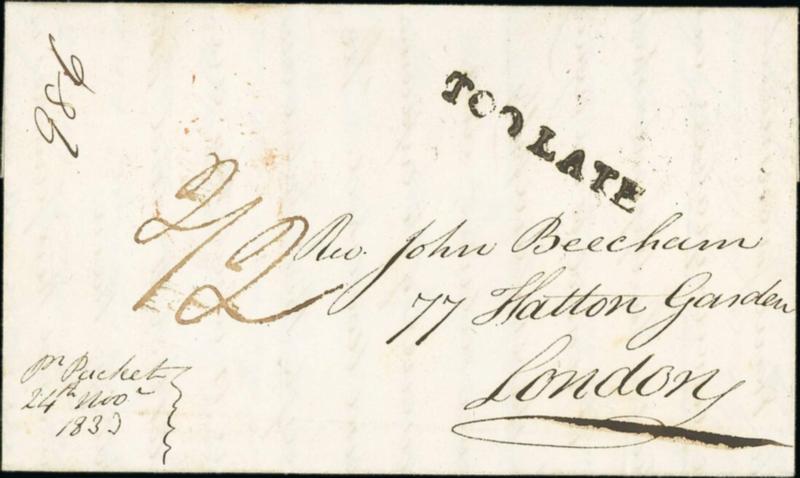 986
TOO LATE
2/2
Rev. John Beecham
77 Hatton Garden
London
pr Packet
24th Novr
1833